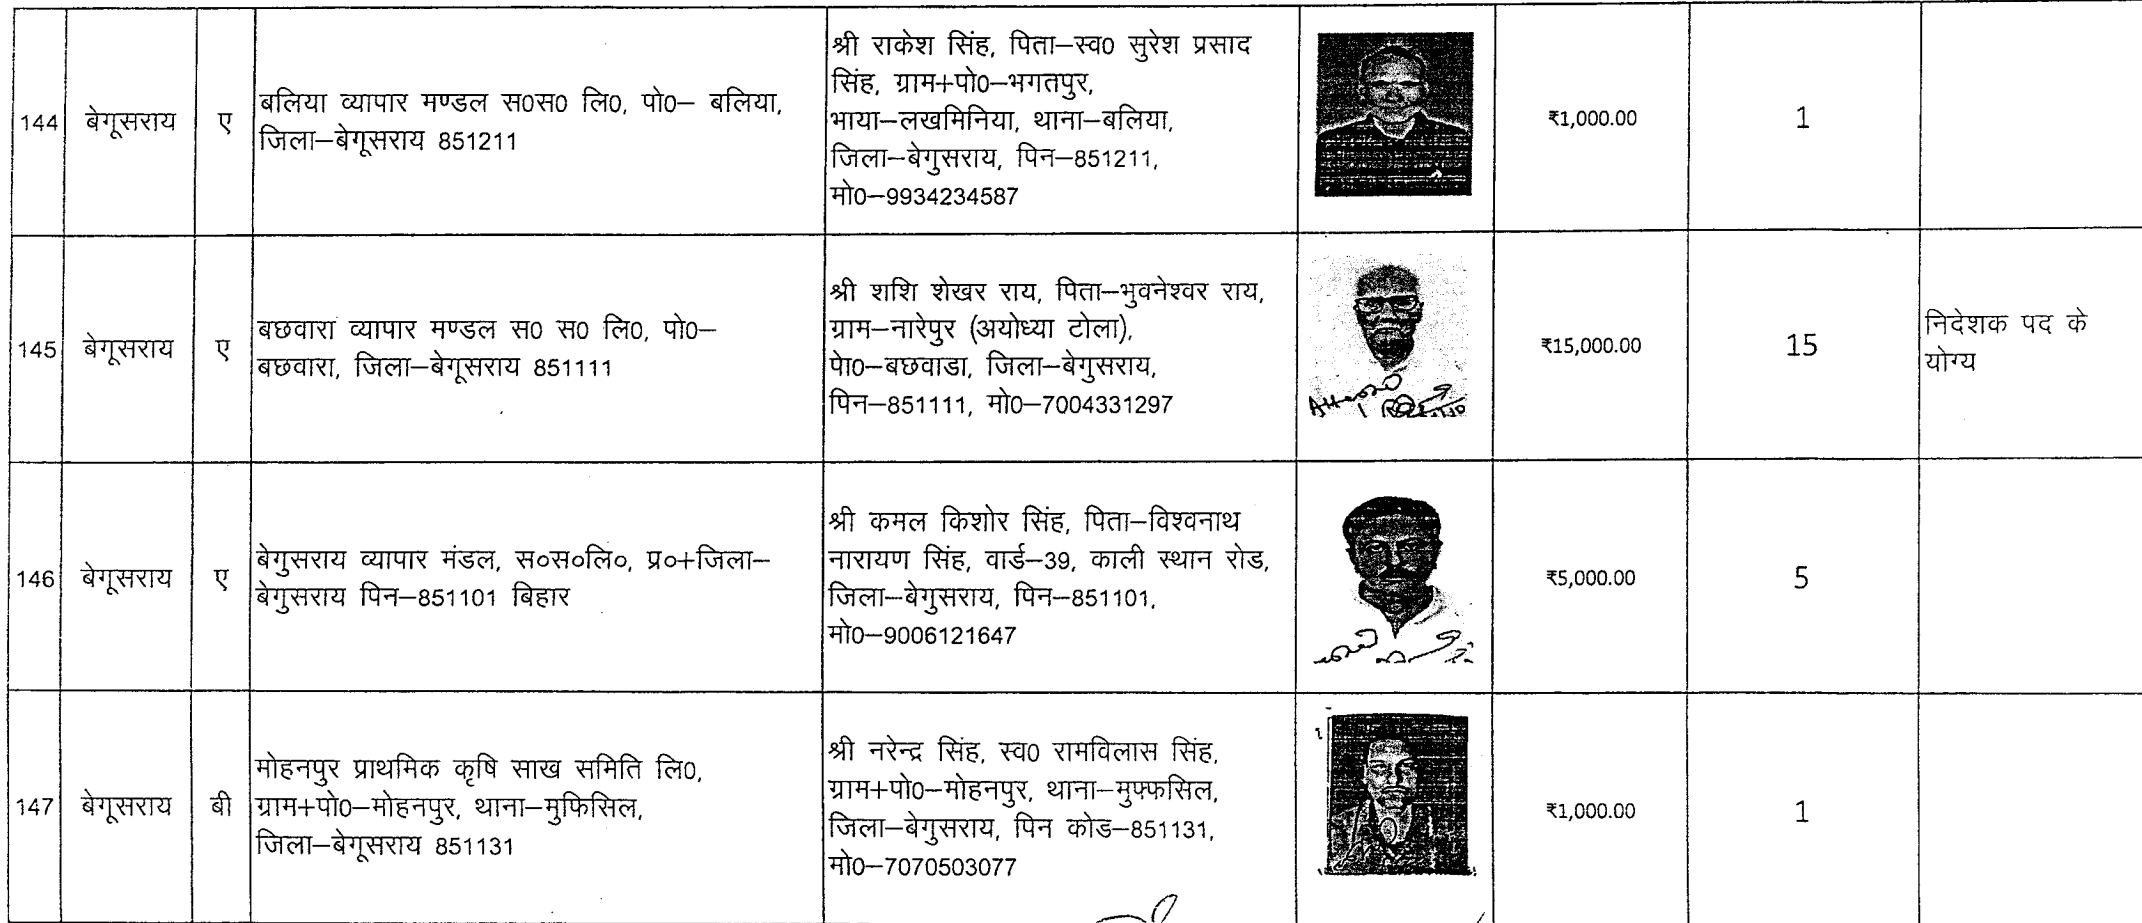 144
बेगूसराय
ए
बलिया व्यापार मण्डल स0स0 लि0, पो0– बलिया,
जिला–बेगूसराय 851211
श्री राकेश सिंह, पिता–स्व0 सुरेश प्रसाद
सिंह, ग्राम+पो0–भगतपुर,
भाया–लखमिनिया, थाना–बलिया,
जिला–बेगुसराय, पिन–851211,
मो0–9934234587
₹1,000.00
1
145
बेगूसराय
ए
बछवारा व्यापार मण्डल स0 स0 लि0, पो0–
बछवारा, जिला–बेगूसराय 851111
श्री शशि शेखर राय, पिता–भुवनेश्वर राय,
ग्राम–नारेपुर (अयोध्या टोला),
पेा0–बछवाडा, जिला–बेगुसराय,
पिन–851111, मो0–7004331297
₹15,000.00
15
निदेशक पद के
योग्य
146
बेगूसराय
ए
बेगुसराय व्यापार मंडल, स०स०लि०, प्र०+जिला–
बेगुसराय पिन–851101 बिहार
श्री कमल किशोर सिंह, पिता–विश्वनाथ
नारायण सिंह, वार्ड–39, काली स्थान रोड,
जिला–बेगुसराय, पिन–851101,
मो0–9006121647
₹5,000.00
5
147
बेगूसराय
बी
मोहनपुर प्राथमिक कृषि साख समिति लि0,
ग्राम+पो0–मोहनपुर, थाना–मुफिसिल,
जिला–बेगूसराय 851131
श्री नरेन्द्र सिंह, स्व0 रामविलास सिंह,
ग्राम+पो0–मोहनपुर, थाना–मुफ्फसिल,
जिला–बेगुसराय, पिन कोड–851131,
मो0–7070503077
₹1,000.00
1